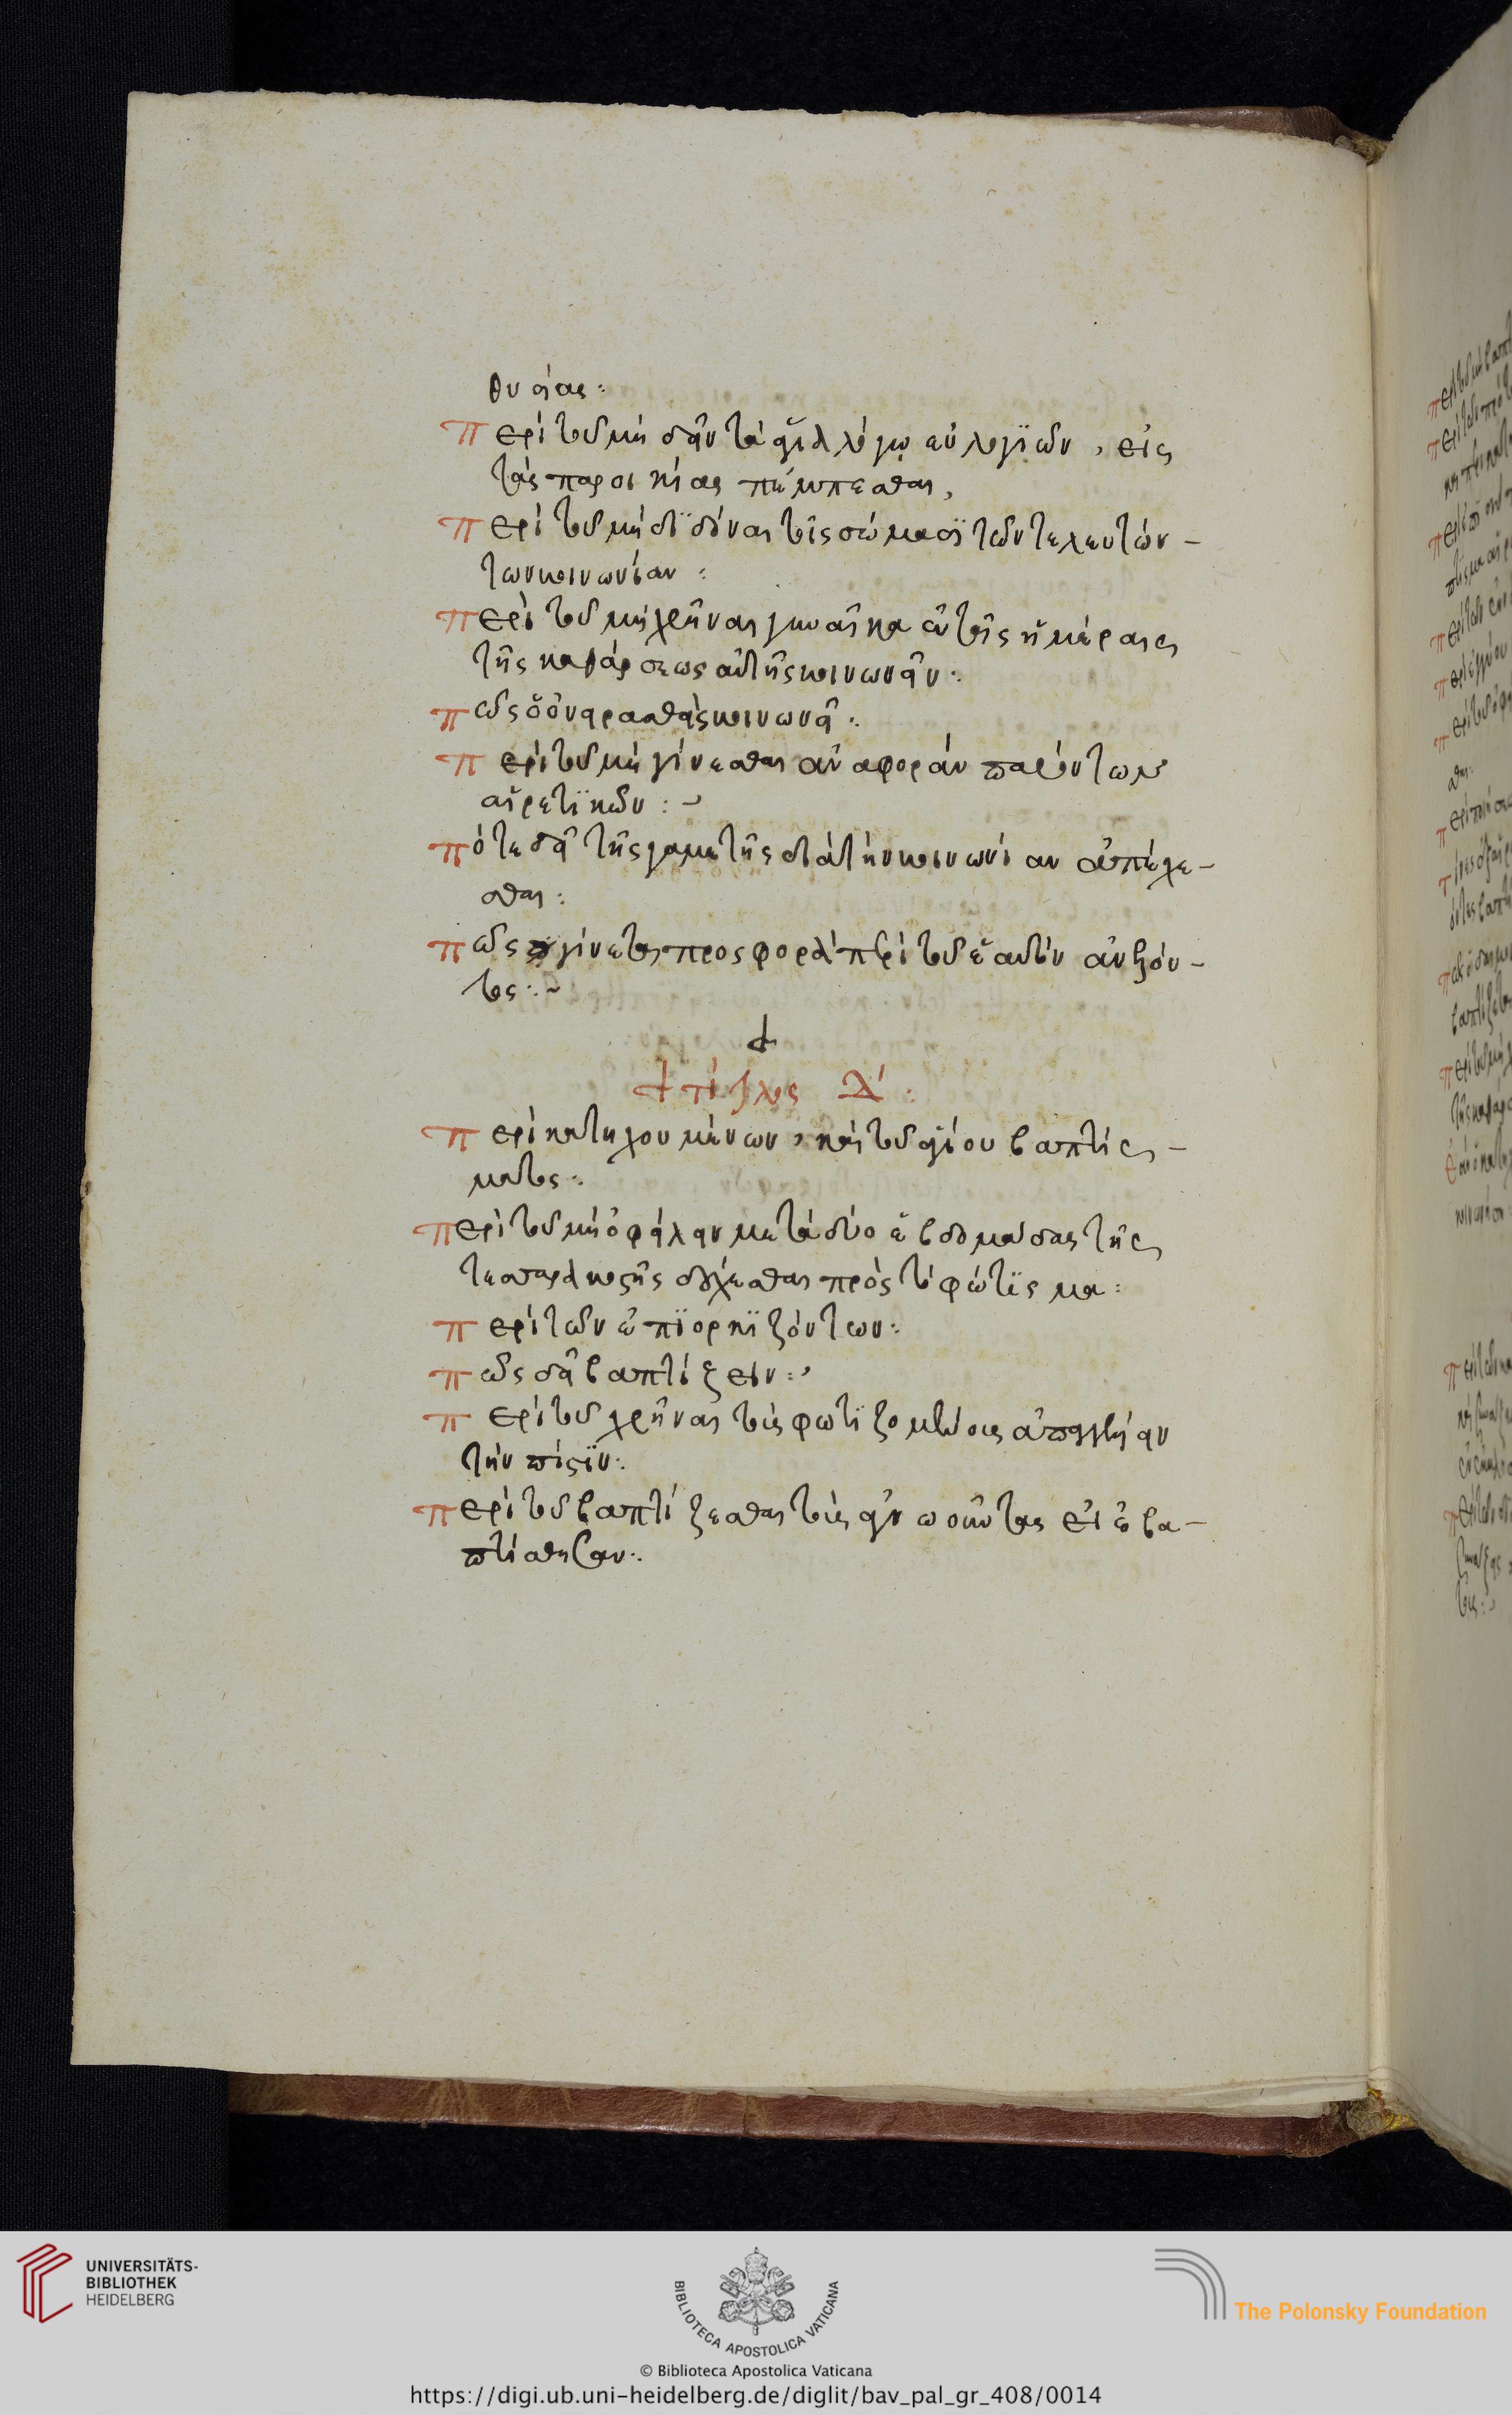 θυσίας:
Περὶ τοῦ μὴ δεῖν τὰ ἅγια λόγῳ εὐλογϊῶν, εἰς
τὰς παροικίας πέμπεσθαι,
Περὶ τοῦ μὴ δϊδόναι τοῖς σώμασϊ τῶν τελευτών-
των κοινωνίαν:
Περὶ τοῦ μὴ χρῆναι γυναῖκα ἐν ταῖς ἡμέραις
τῆς καθάρσεως αὐτῆς κοινωνεῖν:
πῶς ὁ ὀνειρασθεὶς κοινωνεῖ:
Περὶ τοῦ μὴ γίνεσθαι ἀναφορὰν παρόντων
αἱρετϊκῶν:
πότε δεῖ τῆς γαμετῆς διὰ τὴν κοινωνίαν ἀπέχε-
σθαι:
πῶς γίνεται προσφορὰ περὶ τοῦ ἑαυτὸν ἀνελόν-
τος:
Τίτλος Δ΄:
Περὶ κατηχουμένων, καὶ τοῦ ἁγίου βαπτίσ-
ματος:
Περὶ τοῦ μὴ ὀφείλειν μετὰ δύο ἑβδομάδας τῆς
τεσσαρακοστῆς δέχεσθαι πρὸς τὸ φώτϊσμα:
Περὶ τῶν ἐπϊορκϊζόντων:
πῶς δεῖ βαπτίζειν:
Περὶ τοῦ χρῆναι τοὺς φωτϊζομένους ἀπαγγέλειν
τὴν πίστϊν:
Περὶ τοῦ βαπτίζεσθαι τοὺς ἀγνοοῦντας εἰ ἐβα-
πτίσθησαν:
UNIVERSITÄTS-
BIBLIOTHEK
HEIDELBERG
BIBLIOTECA APOSTOLICA VATICANA
The Polonsky Foundation
© Biblioteca Apostolica Vaticana
https://digi.ub.uni-heidelberg.de/diglit/bav_pal_gr_408/0014